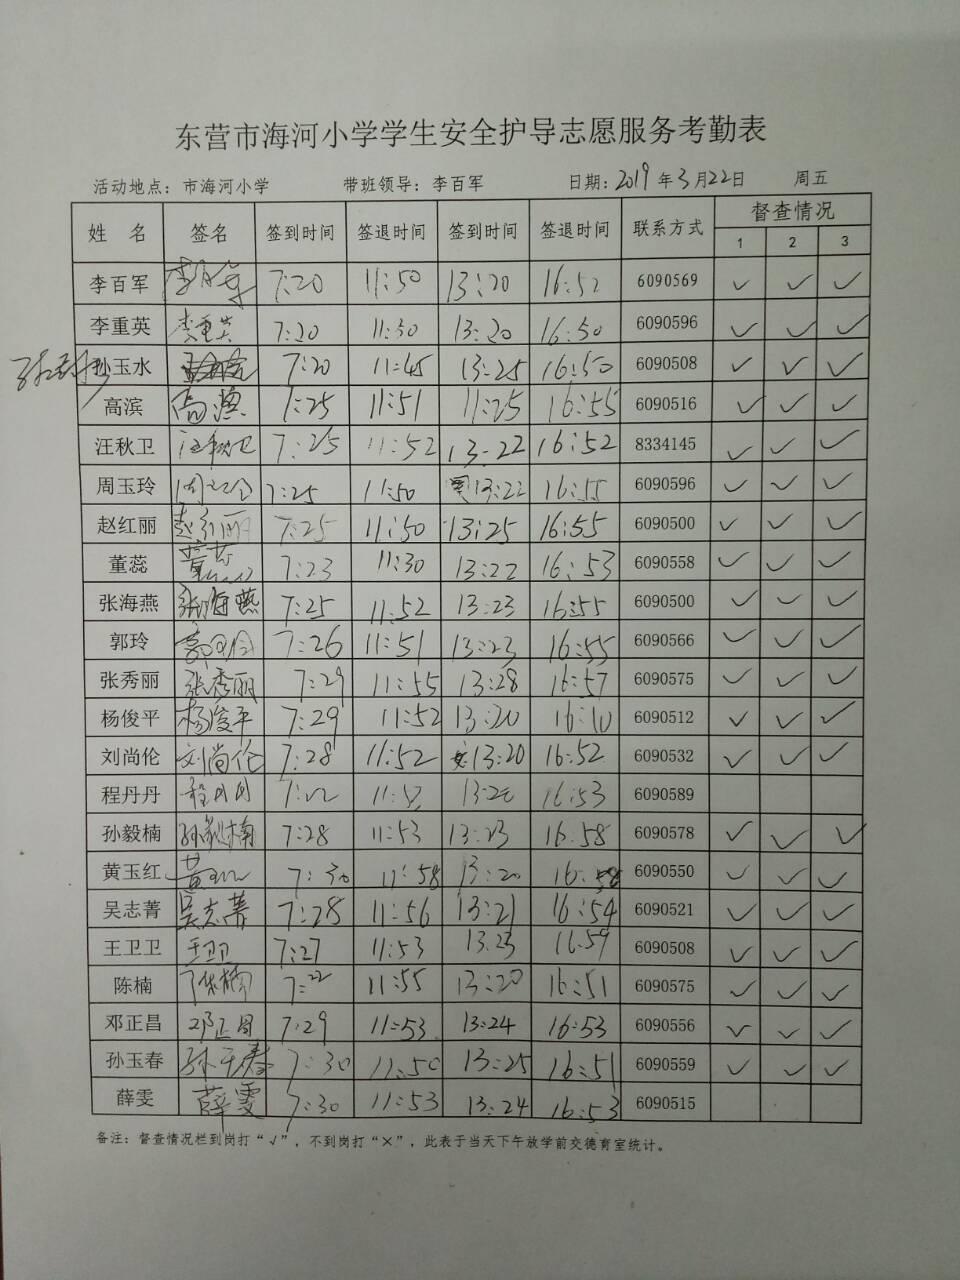 东营市海河小学学生安全护导志愿服务考勤表
活动地点：市海河小学 带班领导：李百军 日期：2019年3月22日 周五
姓 名 签名 签到时间 签退时间 签到时间 签退时间 联系方式 督查情况
1 2 3
李百军 7:20 11:50 13:20 16:52 6090569 ✓ ✓ ✓
李重英 李重英 7:20 11:30 13:20 16:50 6090596 ✓ ✓ ✓
孙玉水 7:20 11:45 13:25 16:50 6090508 ✓ ✓ ✓
高滨 高滨 7:25 11:51 11:25 16:55 6090516 ✓ ✓ ✓
汪秋卫 汪秋卫 7:25 11:52 13:22 16:52 8334145 ✓ ✓ ✓
周玉玲 周玉玲 7:25 11:50 13:22 16:55 6090596 ✓ ✓ ✓
赵红丽 赵红丽 7:25 11:50 13:25 16:55 6090500 ✓ ✓ ✓
董蕊 董蕊 7:23 11:30 13:22 16:53 6090558 ✓ ✓ ✓
张海燕 张海燕 7:25 11:52 13:23 16:55 6090500 ✓ ✓ ✓
郭玲 郭玲 7:26 11:51 13:23 16:55 6090566 ✓ ✓ ✓
张秀丽 张秀丽 7:29 11:55 13:28 16:57 6090575 ✓ ✓ ✓
杨俊平 杨俊平 7:29 11:52 13:20 16:10 6090512 ✓ ✓ ✓
刘尚伦 刘尚伦 7:28 11:52 13:20 16:52 6090532 ✓ ✓ ✓
程丹丹 程丹丹 7:22 11:52 13:20 16:53 6090589
孙毅楠 孙毅楠 7:28 11:53 13:23 16:58 6090578 ✓ ✓ ✓
黄玉红 黄玉红 7:30 11:58 13:20 16:58 6090550 ✓ ✓ ✓
吴志菁 吴志菁 7:28 11:56 13:21 16:54 6090521 ✓ ✓ ✓
王卫卫 王卫卫 7:27 11:53 13:23 16:59 6090508 ✓ ✓ ✓
陈楠 陈楠 7:22 11:55 13:20 16:51 6090575 ✓ ✓ ✓
邓正昌 邓正昌 7:29 11:53 13:24 16:53 6090556 ✓ ✓ ✓
孙玉春 孙玉春 7:30 11:50 13:25 16:51 6090559 ✓ ✓ ✓
薛雯 薛雯 7:30 11:53 13:24 16:53 6090515
备注：督查情况栏到岗打“√”，不到岗打“×”，此表于当天下午放学前交德育室统计。